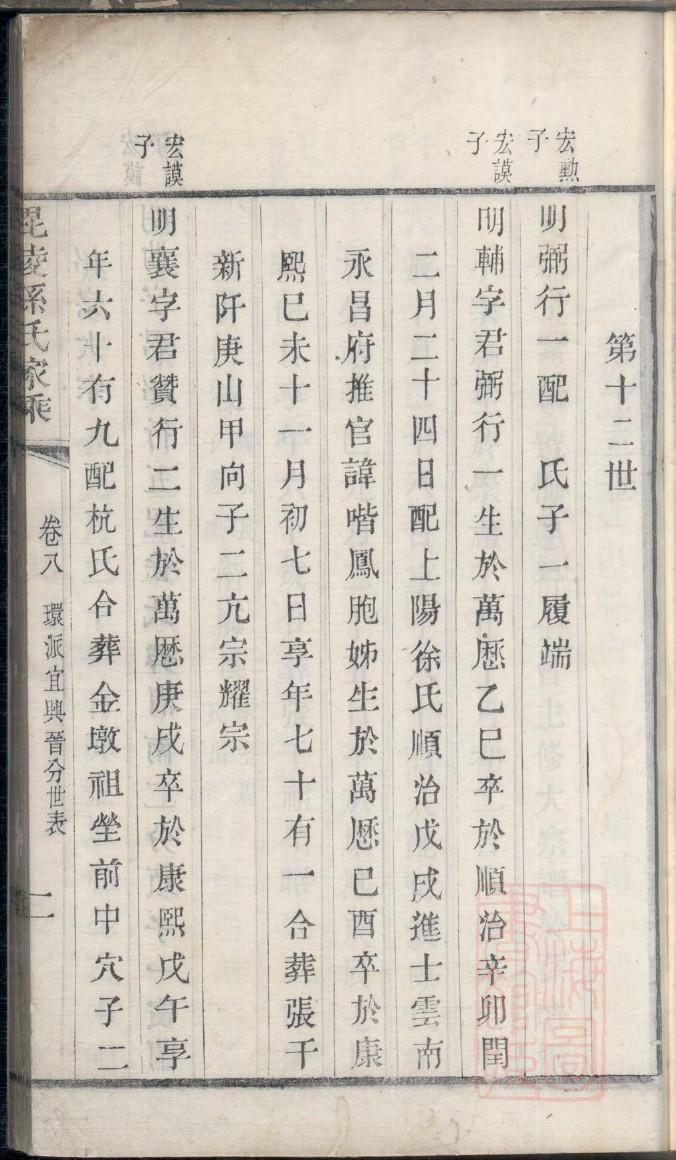 第十二世
宏勳子
明弼行一配　氏子一履端
宏謨子
明輔字君弼行一生於萬厯乙巳卒於順治辛卯閏
二月二十四日配上陽徐氏順治戊戌進士雲南
永昌府推官諱喈鳳胞姊生於萬厯己酉卒於康
熙己未十一月初七日享年七十有一合葬張干
新阡庚山甲向子二亢宗耀宗
宏謨子
明襄字君贊行二生於萬厯庚戌卒於康熙戊午享
年六十有九配杭氏合葬金墩祖塋前中穴子二
毘陵孫氏家乘
卷八　環派宜興晉分世表
二